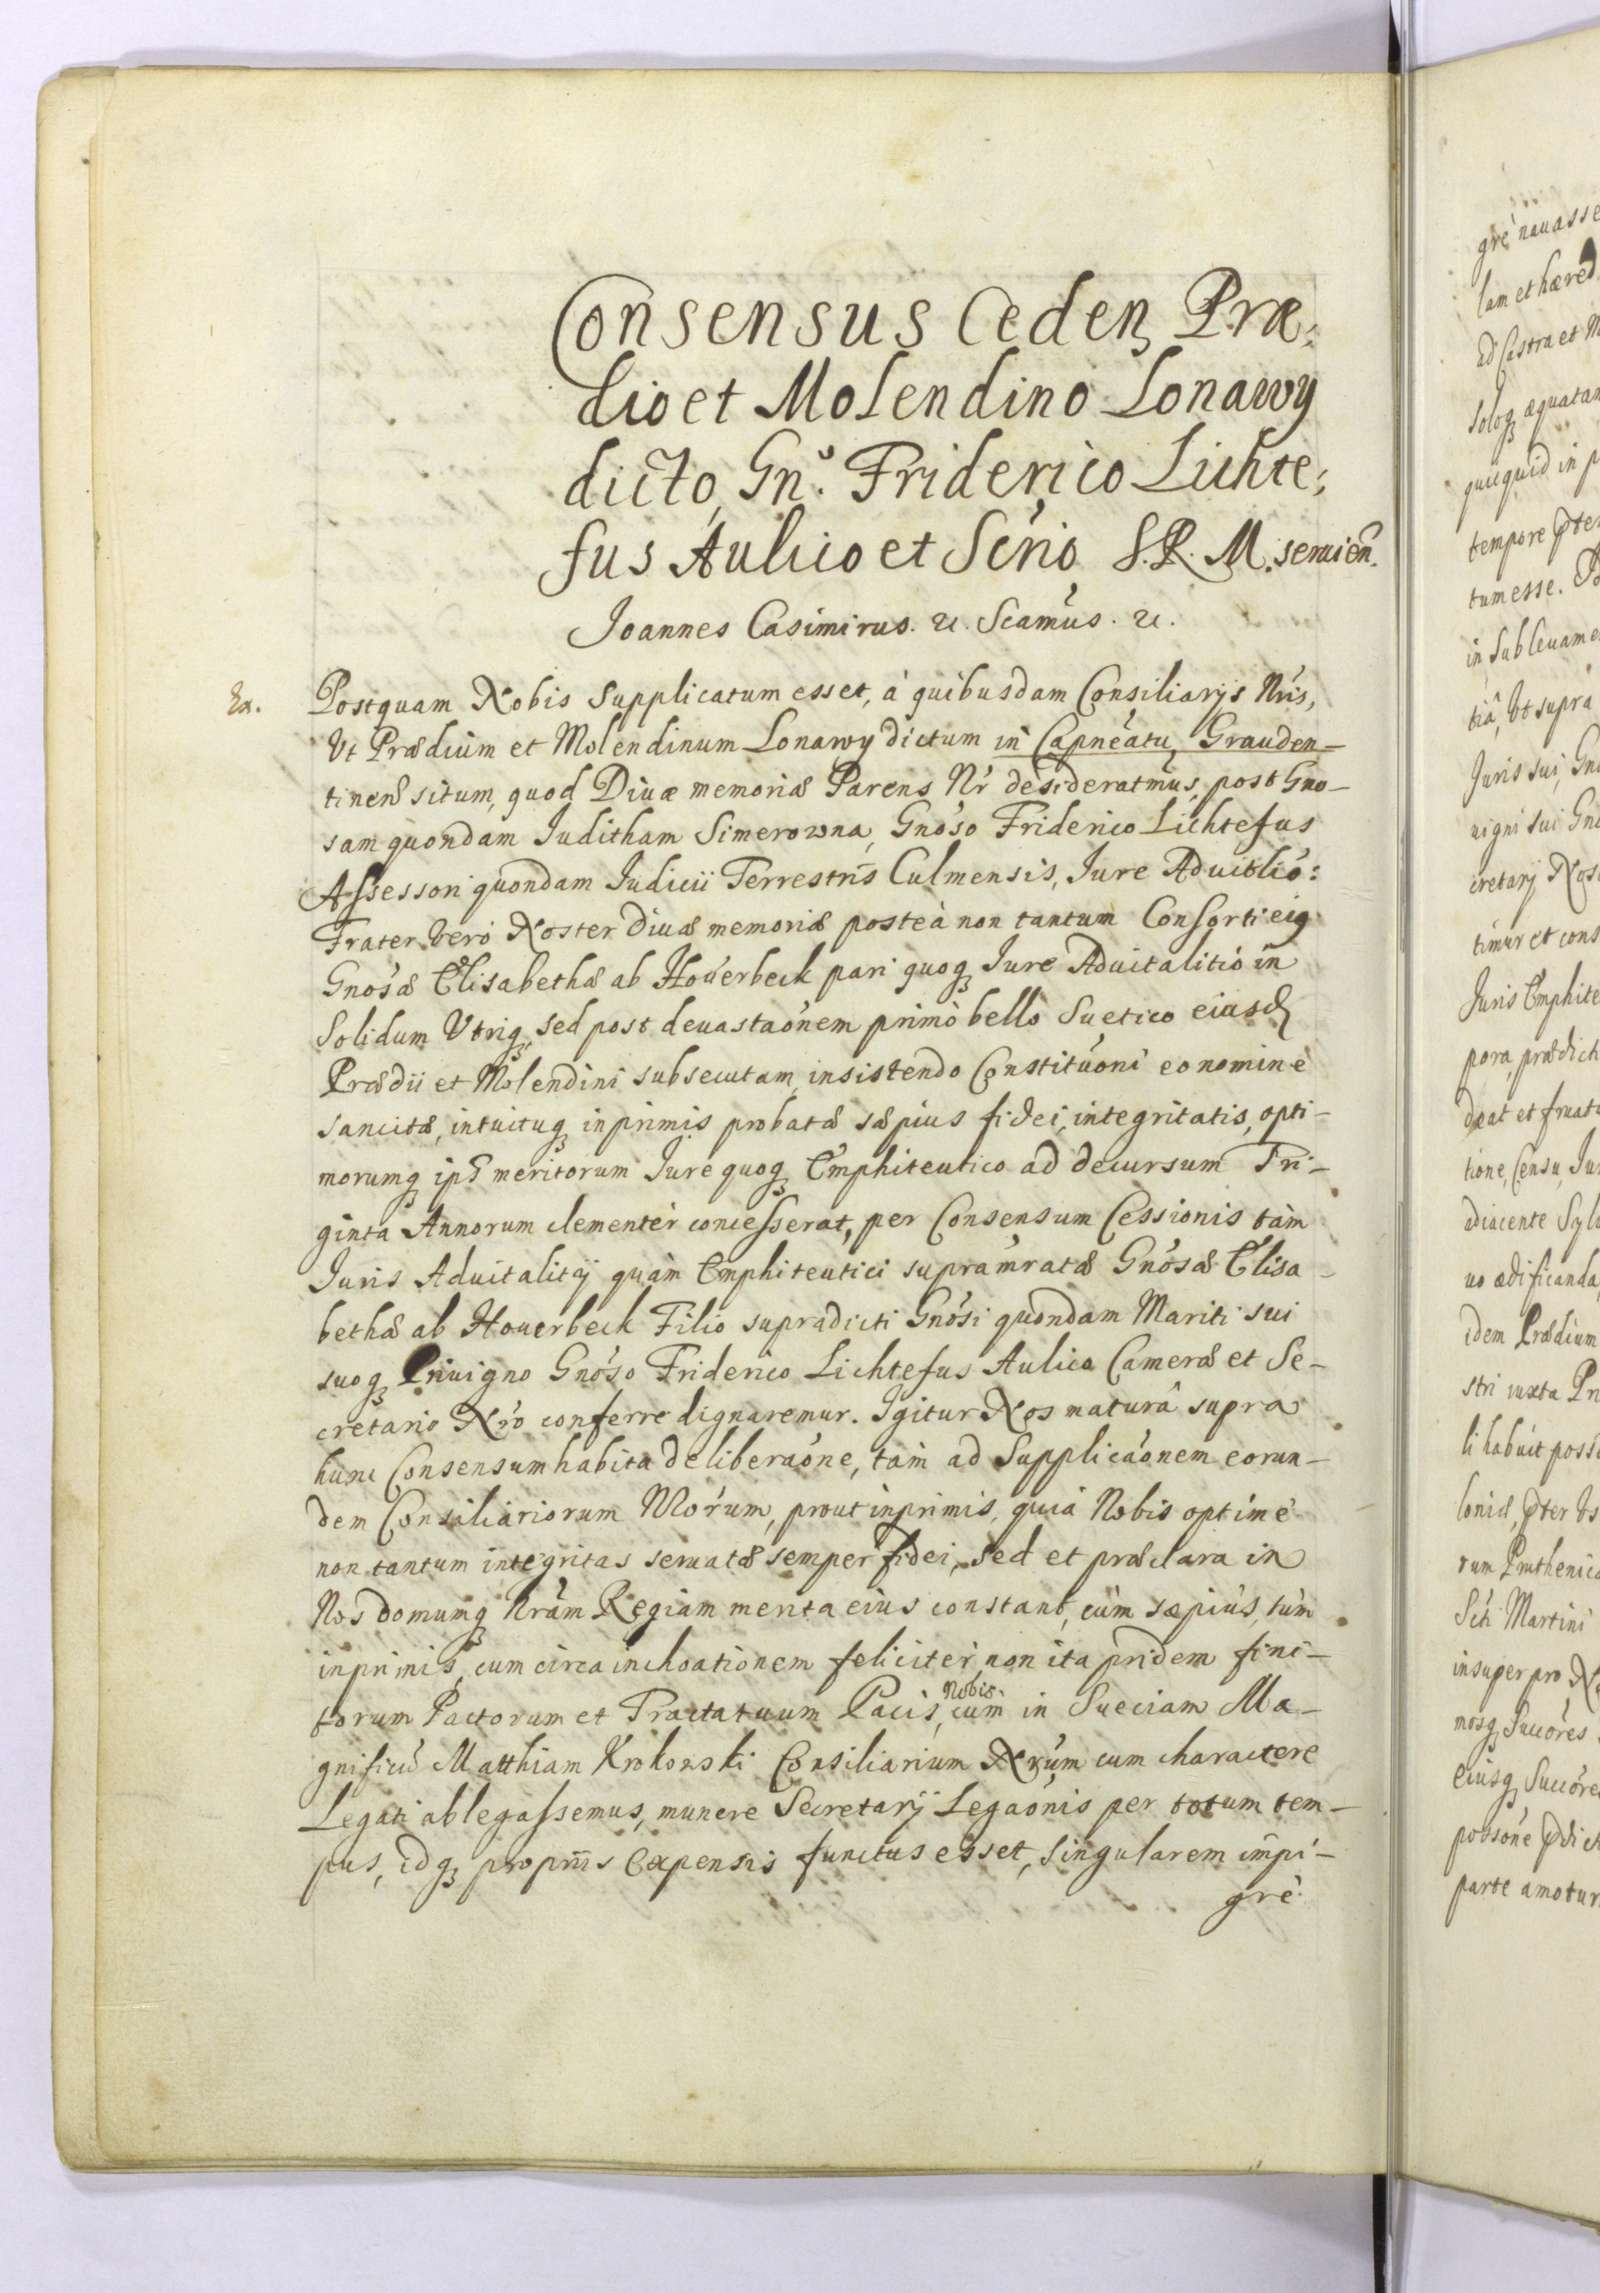 Consensus Ceden Præ,
dio et Molendino Lonawy
dicto, Gn° Friderico Lichte,
fus Aulico et Scrio S. R. M. seruien̄.
Joannes Casimirus. &. Scamus. &.
Ex. Postquam Nobis supplicatum esset, à quibusdam Consiliarijs Nris,
Vt Prædium et Molendinum Lonawy dictum in Capneatu Grauden-
tinen situm, quod Diuæ memoriæ Parens Nr desideratmus, post Gno-
sam quondam Juditham Simerowna, Gnoso Friderico Lichtefus
Assessori quondam Judicii Terrestris Culmensis, Jure Aduitlio:
Frater Vero Noster diuæ memoriæ posteà non tantum Consorti eiq
Gnosæ Elisabethæ ab Houerbeck pari quoq Jure Aduitalitio in
Solidum Vtriq, sed post deuastaonem primò bello Suetico eiusd
Prædii et Molendini subsecutam, insistendo Constituoni eo nomine
sancitæ, intuituq inprimis probatæ sæpius fidei, integritatis, opti-
morumq ips meritorum Jure quoq Emphiteutico ad decursum Tri-
ginta Annorum clementèr concesserat, per Consensum Cessionis tàm
Juris Aduitalitij quàm Emphiteutici supramratæ Gnosæ Elisa-
bethæ ab Houerbeck Filio supradicti Gnosi quondam Mariti sui
suoq Priuigno Gnoso Friderico Lichtefus Aulico Cameræ et Se-
cretario Nro conferre dignaremur. Igitur Nos maturâ supra
hunc Consensum habita deliberaone, tàm ad Supplicaonem eorun-
dem Consiliariorum Nrorum, prout inprimis, quia Nobis optimè
non tantum integritas seruatæ semper fidei, sed et præclara in
Nos domumq Nram Regiam merita eius constant, cùm sæpiùs, tùm
inprimis, cum circa inchoationem felicitèr, non ita pridem fini-
torum Pactorum et Tractatuum Pacis, cum Nobis in Sueciam Ma-
gnificu Matthiam Krokowski Consiliarium Nrum cum charactere
Legati ablegassemus, munere Secretarij Legaonis per totum tem-
pus, idq propriis Expensis functus esset, singularem impi-
grè
grè nauasse
lam et hæred
ad Castra et M
soloq æquatam
quicquid in p
tempore
tum esse.
in subleuame
tiâ, Vt supra
Juris sui, Gno
uigni sui Gno
cretarij Nos
timur et cons
Juris Emphite
pora, prædict
deat et fruatu
tione, Censu, Ju
adiacente Sylu
uo ædificanda,
idem Prædium
stri iuxta Pri
li habuit posse
rum Pruthenic
Scti Martini
insuper pro N
nosq Succores
eiusq Succore
parte amotur